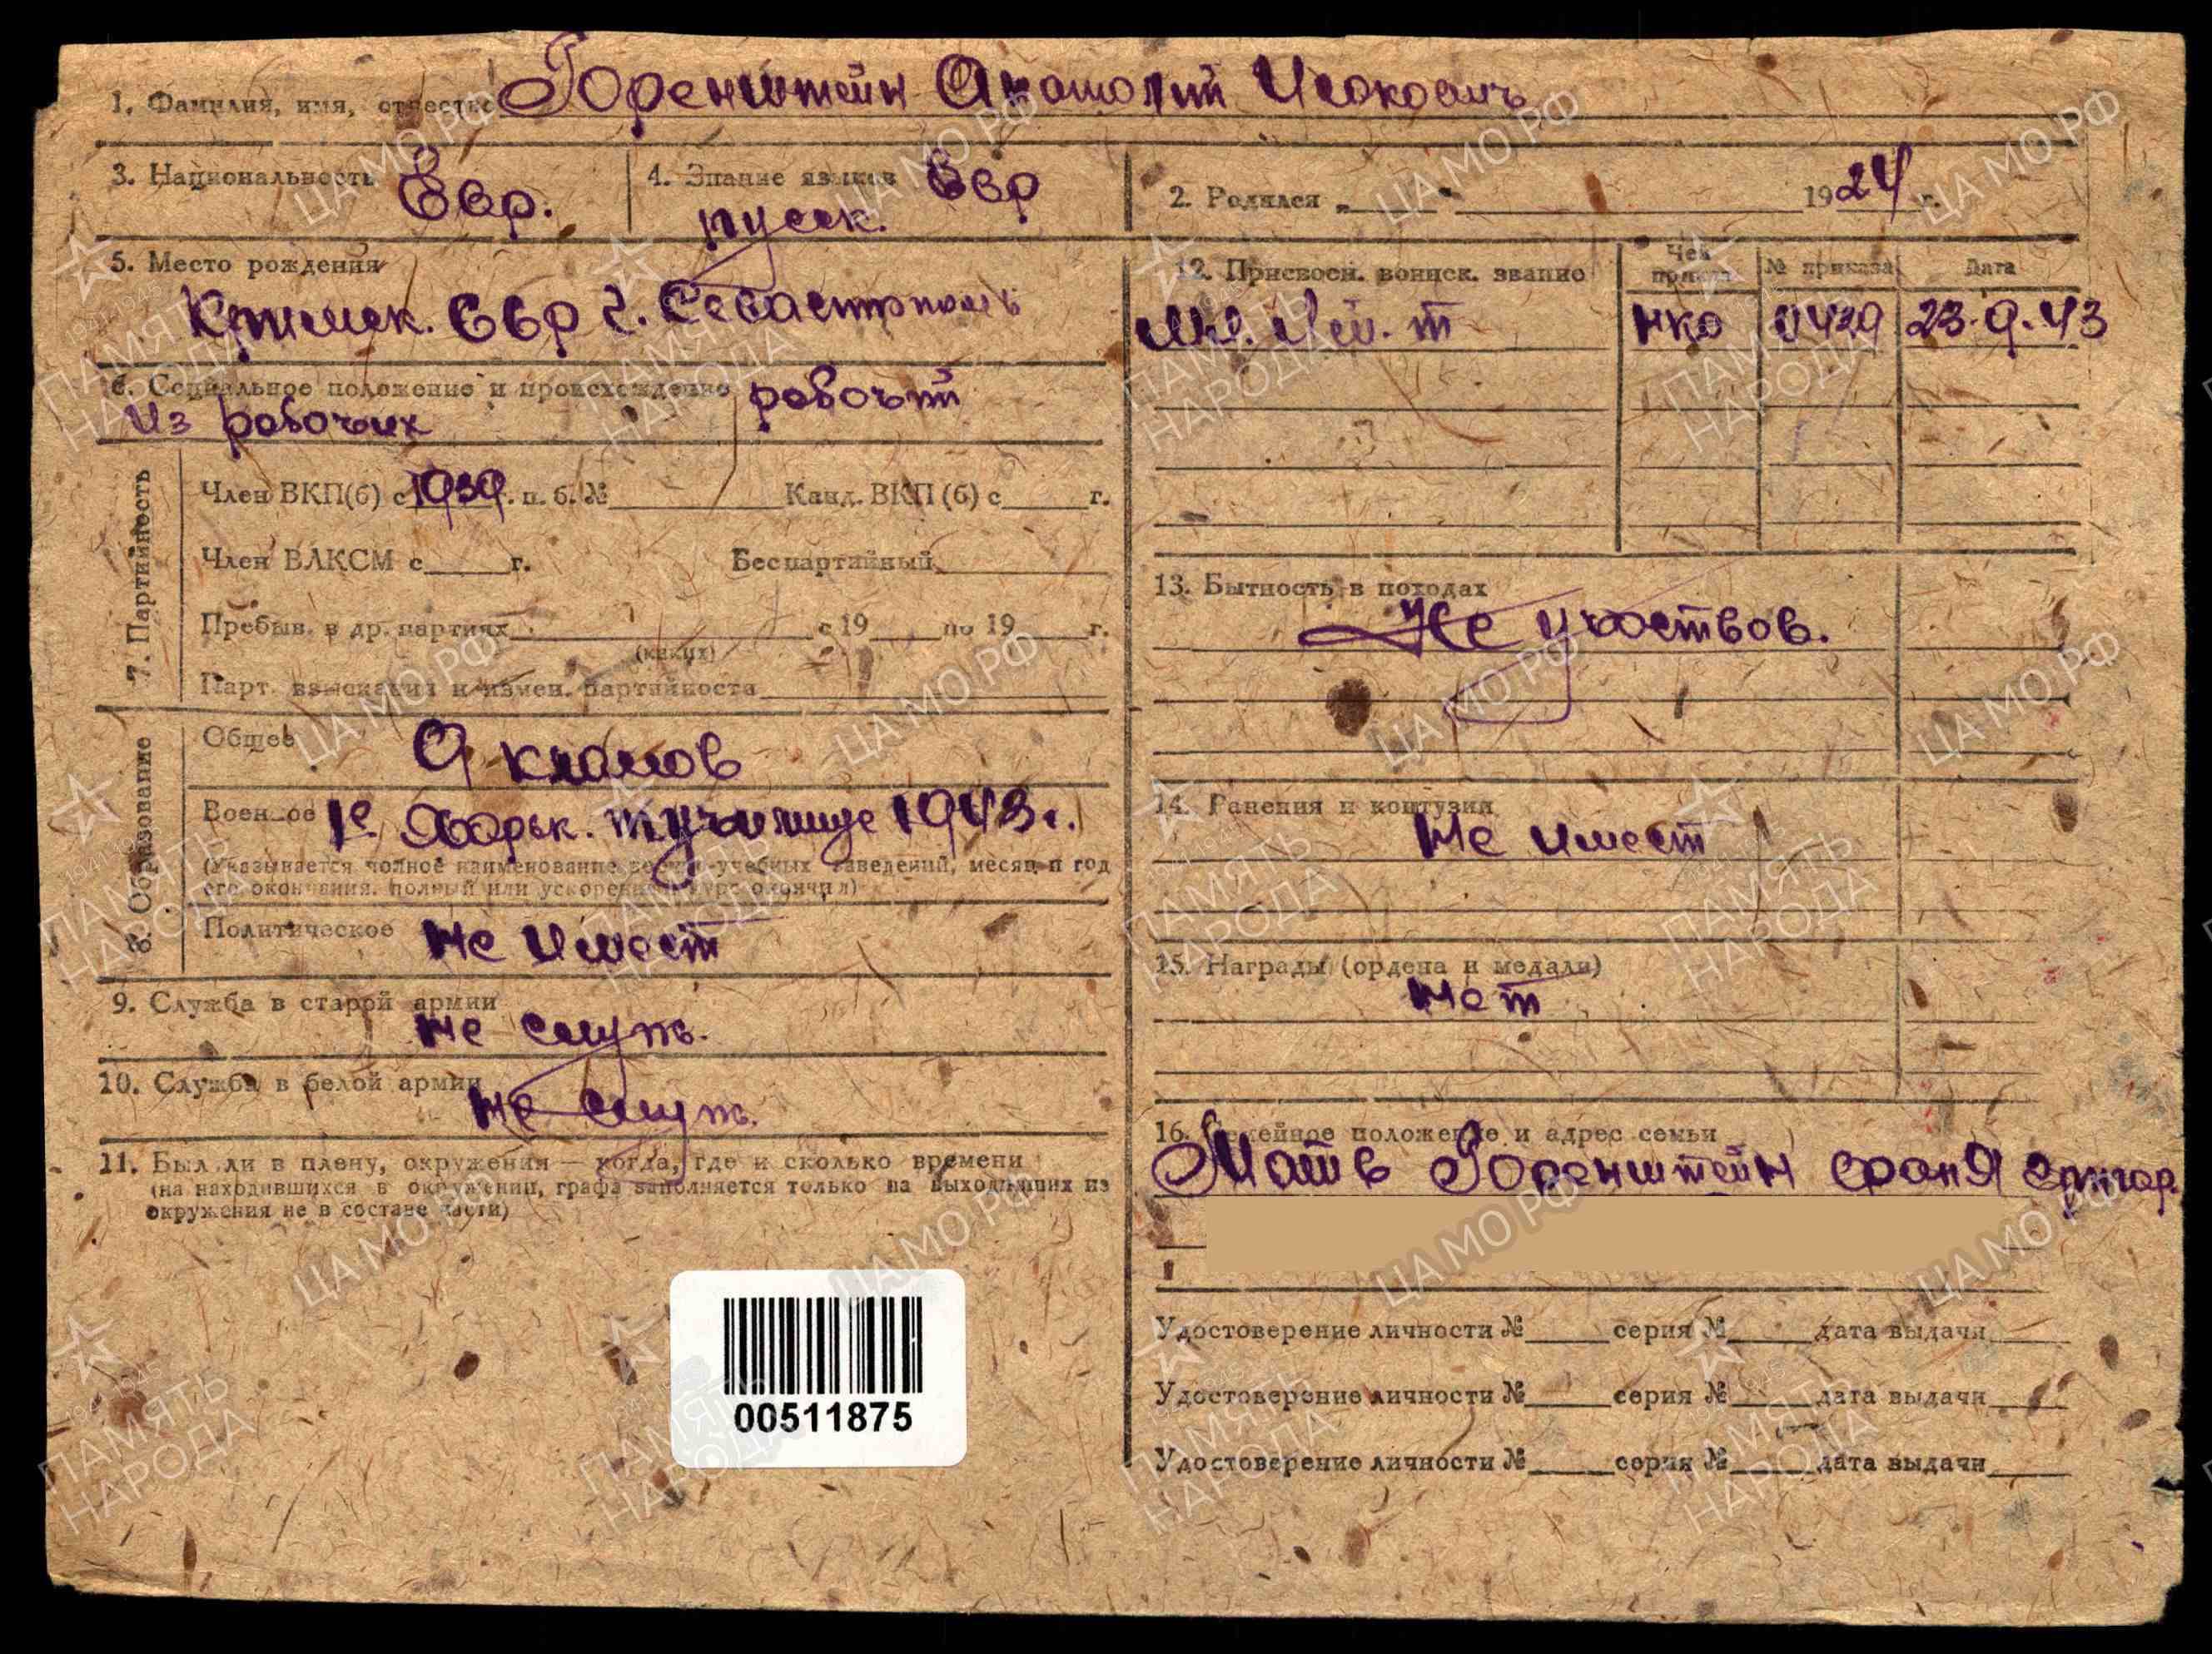 1. Фамилия, имя, отчество Горенштейн Анатолий Исакович
3. Национальность Евр.
4. Знание языков Евр
русск.
2. Родился „ “ 1924 г.
5. Место рождения
Крымск. Евр г. Севастополь
6. Социальное положение и происхождение рабочий
Из рабочих
7. Партийность
Член ВКП(б) с 1939 г. п. б. № Канд. ВКП (б) с г.
Член ВЛКСМ с г. Беспартийный
Пребыв. в др. партиях с 19 по 19 г.
(каких)
Парт. взыскания и измен. партийности
8. Образование
Общее 9 классов
Военное 1е Харьк. т училище 1943 г.
(Указывается полное наименование военно-учебных заведений, месяц и год
его окончания, полный или ускоренный курс окончил)
Политическое Не имеет
9. Служба в старой армии
не служ.
10. Служба в белой армии
не служ.
11. Был ли в плену, окружении — когда, где и сколько времени
(на находившихся в окружении, графа заполняется только на выходивших из
окружения не в составе части)
00511875
12. Присвоен. воинск. звание Чей приказ № приказа Дата
Мл. Лей-т НКО 0429 23.9.43
13. Бытность в походах
Не участвов.
14. Ранения и контузии
Не имеет
15. Награды (ордена и медали)
Нет
16. Семейное положение и адрес семьи
Мать Горенштейн
Удостоверение личности № серия № дата выдачи
Удостоверение личности № серия № дата выдачи
Удостоверение личности № серия № дата выдачи
ЦАМО РФ
1941-1945
ПАМЯТЬ
НАРОДА